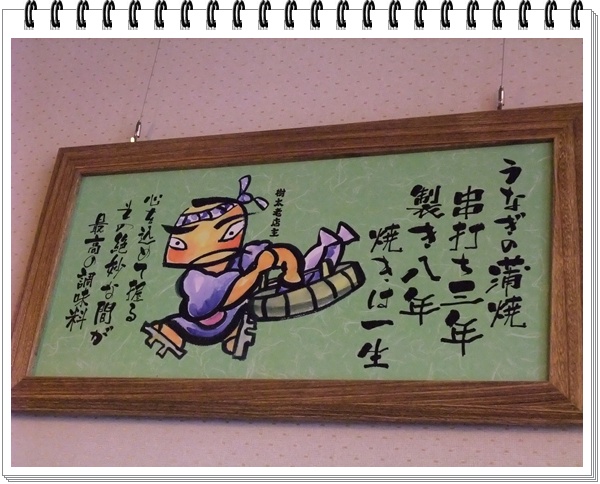 うなぎの蒲焼
串打ち三年
製き八年
焼きは一生
樹太老店主
心を込めて握る
その絶妙な間が
最高の調味料